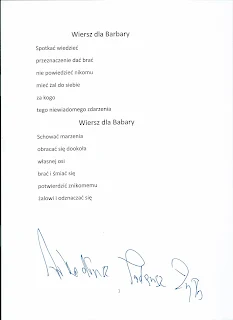 Wiersz dla Barbary
Spotkać wiedzieć
przeznaczenie dać brać
nie powiedzieć nikomu
mieć żal do siebie
za kogo
tego niewiadomego zdarzenia
Wiersz dla Babary
Schować marzenia
obracać się dookoła
własnej osi
brać i śmiać się
potwierdzić znikomemu
żalowi i odznaczać się
1